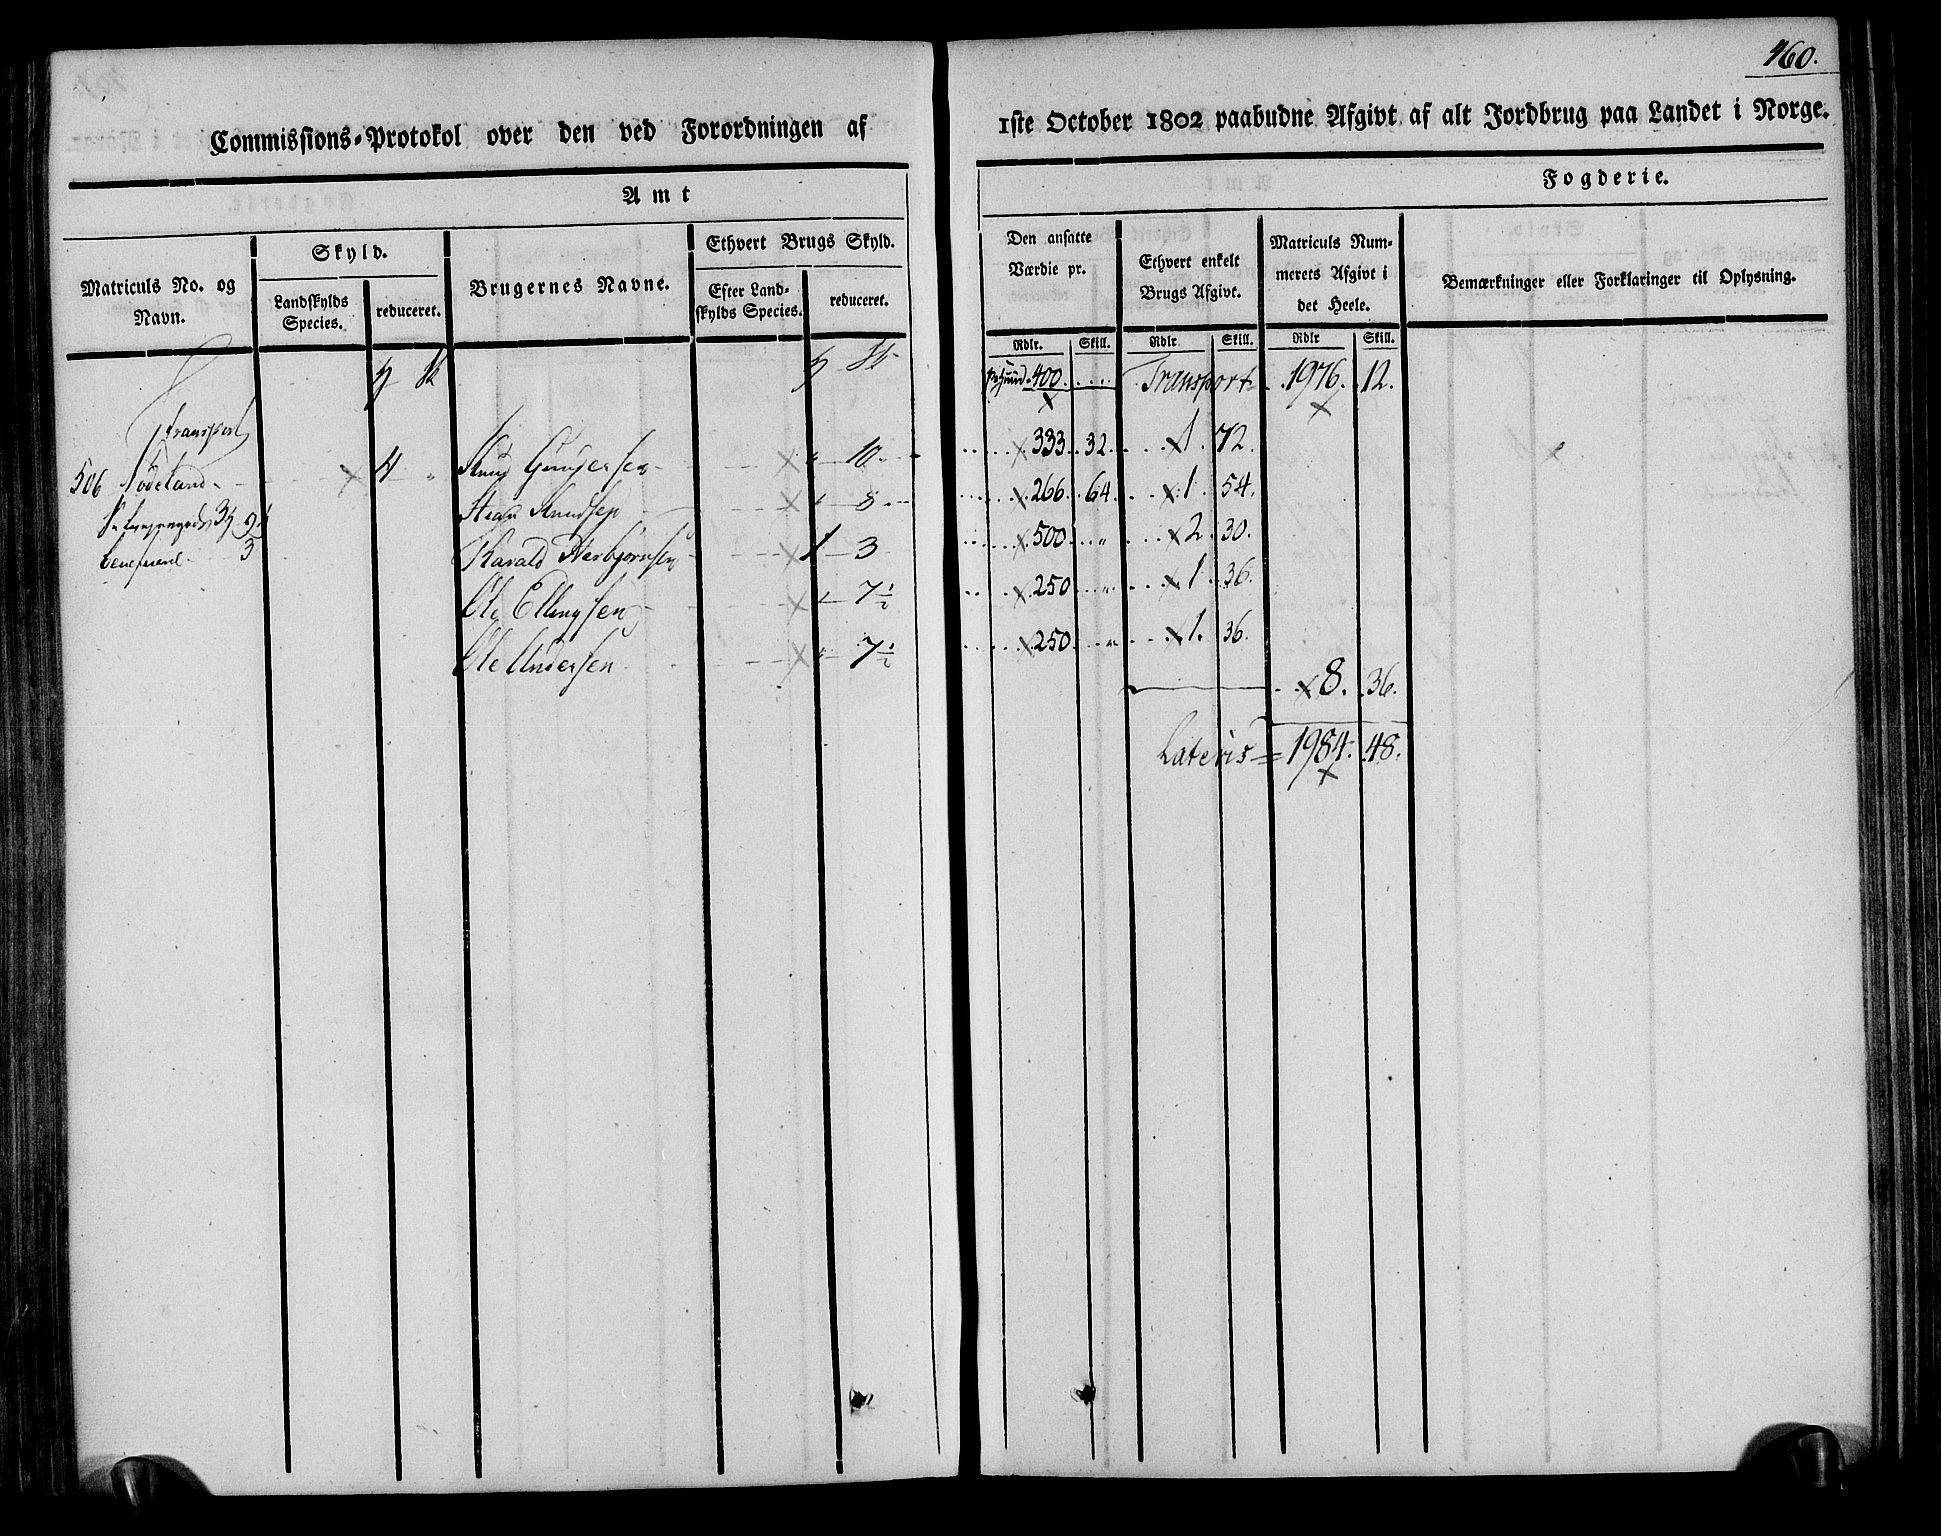 460.
Commissions-Protokol over den ved Forordningen af 1ste October 1802 paabudne Afgivt af alt Jordbrug paa Landet i Norge.
Amt
Fogderie.
Matriculs No. og Navn.
Skyld.
Landskylds Species.
reduceret.
Brugernes Navne.
Ethvert Brugs Skyld.
Efter Landskylds Species.
reduceret.
Den ansatte Værdie pr.
Ethvert enkelt Brugs Afgivt.
Matriculs Nummerets Afgivt i det Heele.
Bemærkninger eller Forklaringer til Oplysning.
Rdlr. Skill. Rdlr. Skill. Rdlr Skill.
400. Transport 1976. 12.
Transport
506 4 Knud 10 333 32 1. 72.
Knudsen 8 266 64 1. 54.
3 9
Harald Herbjørnsen 1 3 500 2 30.
3
Ole Ellingsen 7½ 250 1. 36.
Ole Andersen 7½ 250 1. 36.
8. 36.
Lateris = 1984. 48.